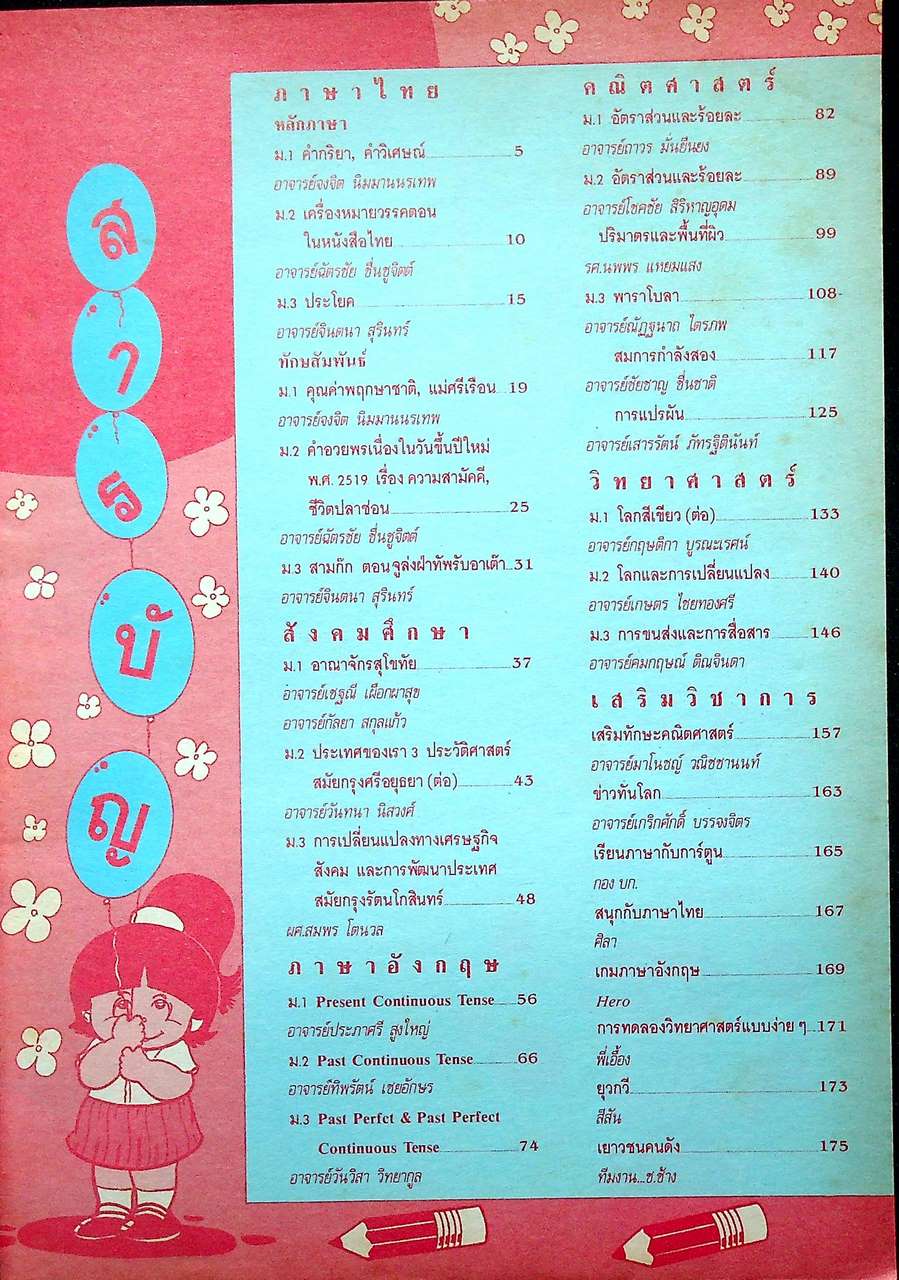 สารบัญ
ภาษาไทย
หลักภาษา
ม.1 คำกริยา, คำวิเศษณ์ 5
อาจารย์จงจิต นิมมานนรเทพ
ม.2 เครื่องหมายวรรคตอน
ในหนังสือไทย 10
อาจารย์ฉัตรชัย ชื่นชูจิตต์
ม.3 ประโยค 15
อาจารย์จินตนา สุรินทร์
ทักษสัมพันธ์
ม.1 คุณค่าพฤกษาชาติ, แม่ศรีเรือน 19
อาจารย์จงจิต นิมมานนรเทพ
ม.2 คำอวยพรเนื่องในวันขึ้นปีใหม่
พ.ศ. 2519 เรื่อง ความสามัคคี,
ชีวิตปลาช่อน 25
อาจารย์ฉัตรชัย ชื่นชูจิตต์
ม.3 สามก๊ก ตอน จูล่งฝ่าทัพรับอาเต๊า 31
อาจารย์จินตนา สุรินทร์
สังคมศึกษา
ม.1 อาณาจักรสุโขทัย 37
อาจารย์เชฐณี เผือกผาสุข
อาจารย์กัลยา สกุลแก้ว
ม.2 ประเทศของเรา 3 ประวัติศาสตร์
สมัยกรุงศรีอยุธยา (ต่อ) 43
อาจารย์วันทนา นิสวงศ์
ม.3 การเปลี่ยนแปลงทางเศรษฐกิจ
สังคม และการพัฒนาประเทศ
สมัยกรุงรัตนโกสินทร์ 48
ผศ.สมพร โตนวล
ภาษาอังกฤษ
ม.1 Present Continuous Tense 56
อาจารย์ประภาศรี สูงใหญ่
ม.2 Past Continuous Tense 66
อาจารย์ทิพรัตน์ เชยอักษร
ม.3 Past Perfct & Past Perfect
Continuous Tense 74
อาจารย์วันวิสา วิทยากูล
คณิตศาสตร์
ม.1 อัตราส่วนและร้อยละ 82
อาจารย์ถาวร มั่นยืนยง
ม.2 อัตราส่วนและร้อยละ 89
อาจารย์โชคชัย สิริหาญอุดม
ปริมาตรและพื้นที่ผิว 99
รศ.นพพร แหยมแสง
ม.3 พาราโบลา 108
อาจารย์ณัฏฐนาถ ไตรภพ
สมการกำลังสอง 117
อาจารย์ชัยชาญ ชื่นชาติ
การแปรผัน 125
อาจารย์เสารรัตน์ ภัทรฐิตินันท์
วิทยาศาสตร์
ม.1 โลกสีเขียว (ต่อ) 133
อาจารย์กฤษติกา บูรณะเรศน์
ม.2 โลกและการเปลี่ยนแปลง 140
อาจารย์เกษตร ไชยทองศรี
ม.3 การขนส่งและการสื่อสาร 146
อาจารย์คมกฤษณ์ ติณจินดา
เสริมวิชาการ
เสริมทักษะคณิตศาสตร์ 157
อาจารย์มาโนชญ์ วณิชชานนท์
ข่าวทันโลก 163
อาจารย์เกริกศักดิ์ บรรจงจิตร
เรียนภาษากับการ์ตูน 165
กอง บก.
สนุกกับภาษาไทย 167
ศิลา
เกมภาษาอังกฤษ 169
Hero
การทดลองวิทยาศาสตร์แบบง่าย ๆ 171
พี่เอื้อง
ยุวกวี 173
สีสัน
เยาวชนคนดัง 175
ทีมงาน...ช.ช้าง